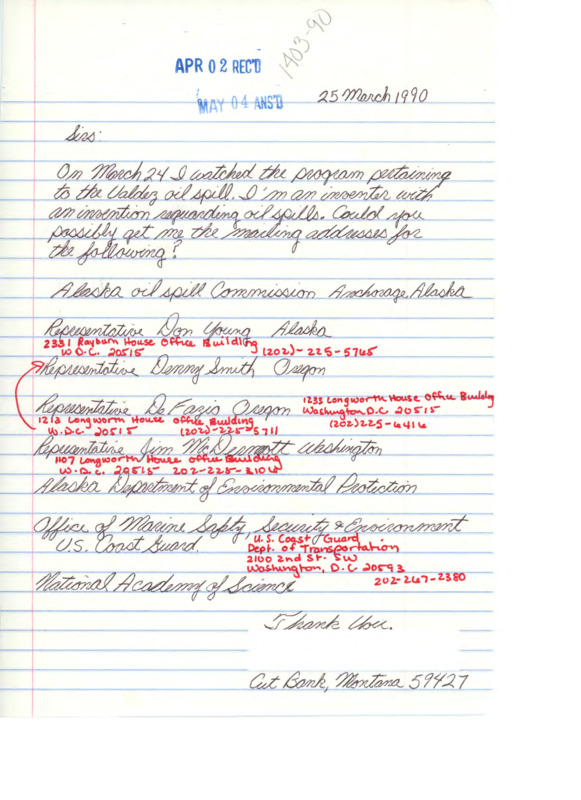 1403-90
APR 02 REC'D
MAY 04 ANS'D
25 March 1990
Sirs:
On March 24 I watched the program pertaining
to the Valdez oil spill. I'm an inventer with
an invention reguarding oil spills. Could you
possibly get me the mailing addresses for
the following?
Alaska oil spill Commission Anchorage, Alaska
Representative Don Young Alaska
2331 Rayburn House Office Building
W.D.C. 20515 (202)-225-5765
Representative Denny Smith Oregon
1233 Longworth House Office Buildg
Representative De Fazio Oregon Washington D.C 20515
1213 Longworth House Office Building (202)225-6416
W.D.C. 20515 (202)-225-5711
Representative Jim McDermott Washington
1107 Longworth House Office Building
W.D.C. 20515 202-225-3106
Alaska Department of Environmental Protection
Office of Marine Safety, Security & Environment
U.S. Coast Guard. U.S. Coast Guard
Dept. of Transportation
2100 2nd St. SW
Washington, D.C 20593
National Academy of Science 202-267-2380
Thank You.
Cut Bank, Montana 59427